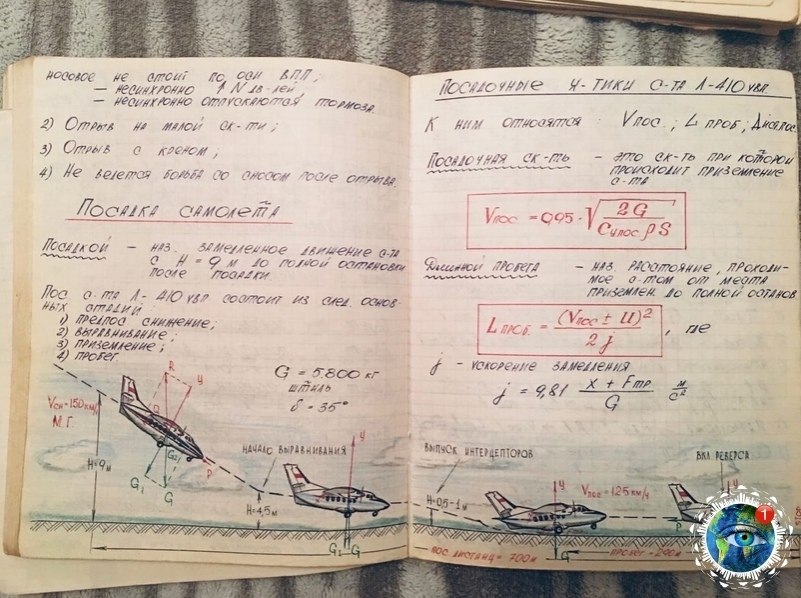 носовое не стоит по оси ВПП;
– несинхронно ↑ N дв-лей;
– несинхронно отпускаются тормоза.
2) Отрыв на малой ск-ти;
3) Отрыв с креном;
4) Не ведется борьба со сносом после отрыва.
Посадка самолета
Посадкой – наз. замедленное движение с-та
с H = 9 м до полной остановки
после посадки.
Пос с-та Л-410 увп состоит из след. основ-
ных стадий:
1) предпос снижение;
2) выравнивание;
3) приземление;
4) пробег.
G = 5800 кг
штиль
δ = 35°
R
У
Q
Vсн = 150 км/ч
М.Г.
H = 9м
G₂
P
G₁
G
начало выравнивания
H=4,5м
У
G₁
G
Посадочные х-тики с-та Л-410 увп.
К ним относятся: Vпос.; L проб.; Дисп.пос.
Посадочная ск-ть – это ск-ть при которой
происходит приземление
с-та
Vпос = 0,95·√ 2G / Cу пос. ρ S
Длинной пробега – наз. расстояние, проходи-
мое с-том от места
приземлен. до полной останов
L проб. = (Vпос ± U)² / 2j , где
j – ускорение замедления
j = 9,81 X + Fтр / G м/с²
выпуск интерцепторов
H=0,5-1м
У
Vпос = 125 км/ч
G
вкл реверса
У
P
пос. дистанц = 700м
пробег = 290м
1